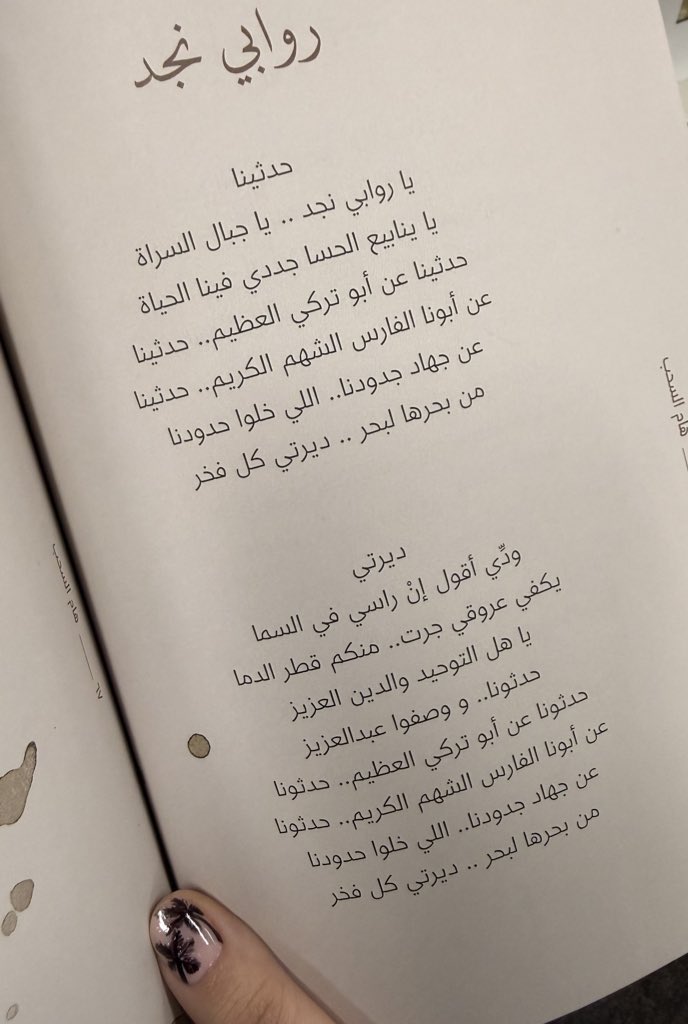 روابي نجد
حدثينا
يا روابي نجد .. يا جبال السراة
يا ينابيع الحسا جددي فينا الحياة
حدثينا عن أبو تركي العظيم.. حدثينا
عن أبونا الفارس الشهم الكريم.. حدثينا
عن جهاد جدودنا.. اللي خلوا حدودنا
من بحرها لبحر .. ديرتي كل فخر
ديرتي
ودِّي أقول إنْ راسي في السما
يكفي عروقي جرت.. منكم قطر الدما
يا هل التوحيد والدين العزيز
حدثونا.. و وصفوا عبدالعزيز
حدثونا عن أبو تركي العظيم.. حدثونا
عن أبونا الفارس الشهم الكريم.. حدثونا
عن جهاد جدودنا.. اللي خلوا حدودنا
من بحرها لبحر .. ديرتي كل فخر
هام السحب
هام السحب
٦٧